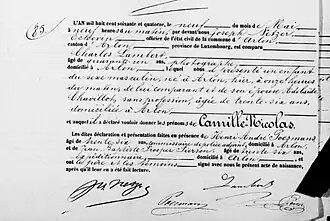 85
L'AN mil huit cent soixante et quatorze, le neuf du mois de Mai
à neuf heures du matin, par devant nous Joseph Netzer
Echevin officier de l'état civil de la commune d'Arlon
canton d'Arlon province de Luxembourg, est comparu
Charles Lambert
âgé de quarante un ans, photographe
domicilié à Arlon, lequel nous a présenté un enfant
du sexe masculin, né à Arlon, hier, à onze heures
du matin, de lui comparant et de son épouse Adélaïde
Chavillot, sans profession, âgée de trente six ans,
domiciliée à Arlon
et auquel il a déclaré vouloir donner les prénoms de Camille Nicolas.
Les dites déclaration et présentation faites en présence de Remi André Poesmans
âgé de trente six ans, commissaire de police adjoint, domicilié à Arlon,
et Jean Baptiste Pierson âgé de trente
six ans, expéditionnaire domicilié à Arlon
et ont le père et les témoins signé avec nous le présent acte de naissance
après lecture
Jos Netzer
Poesmans
Lambert
Pierson